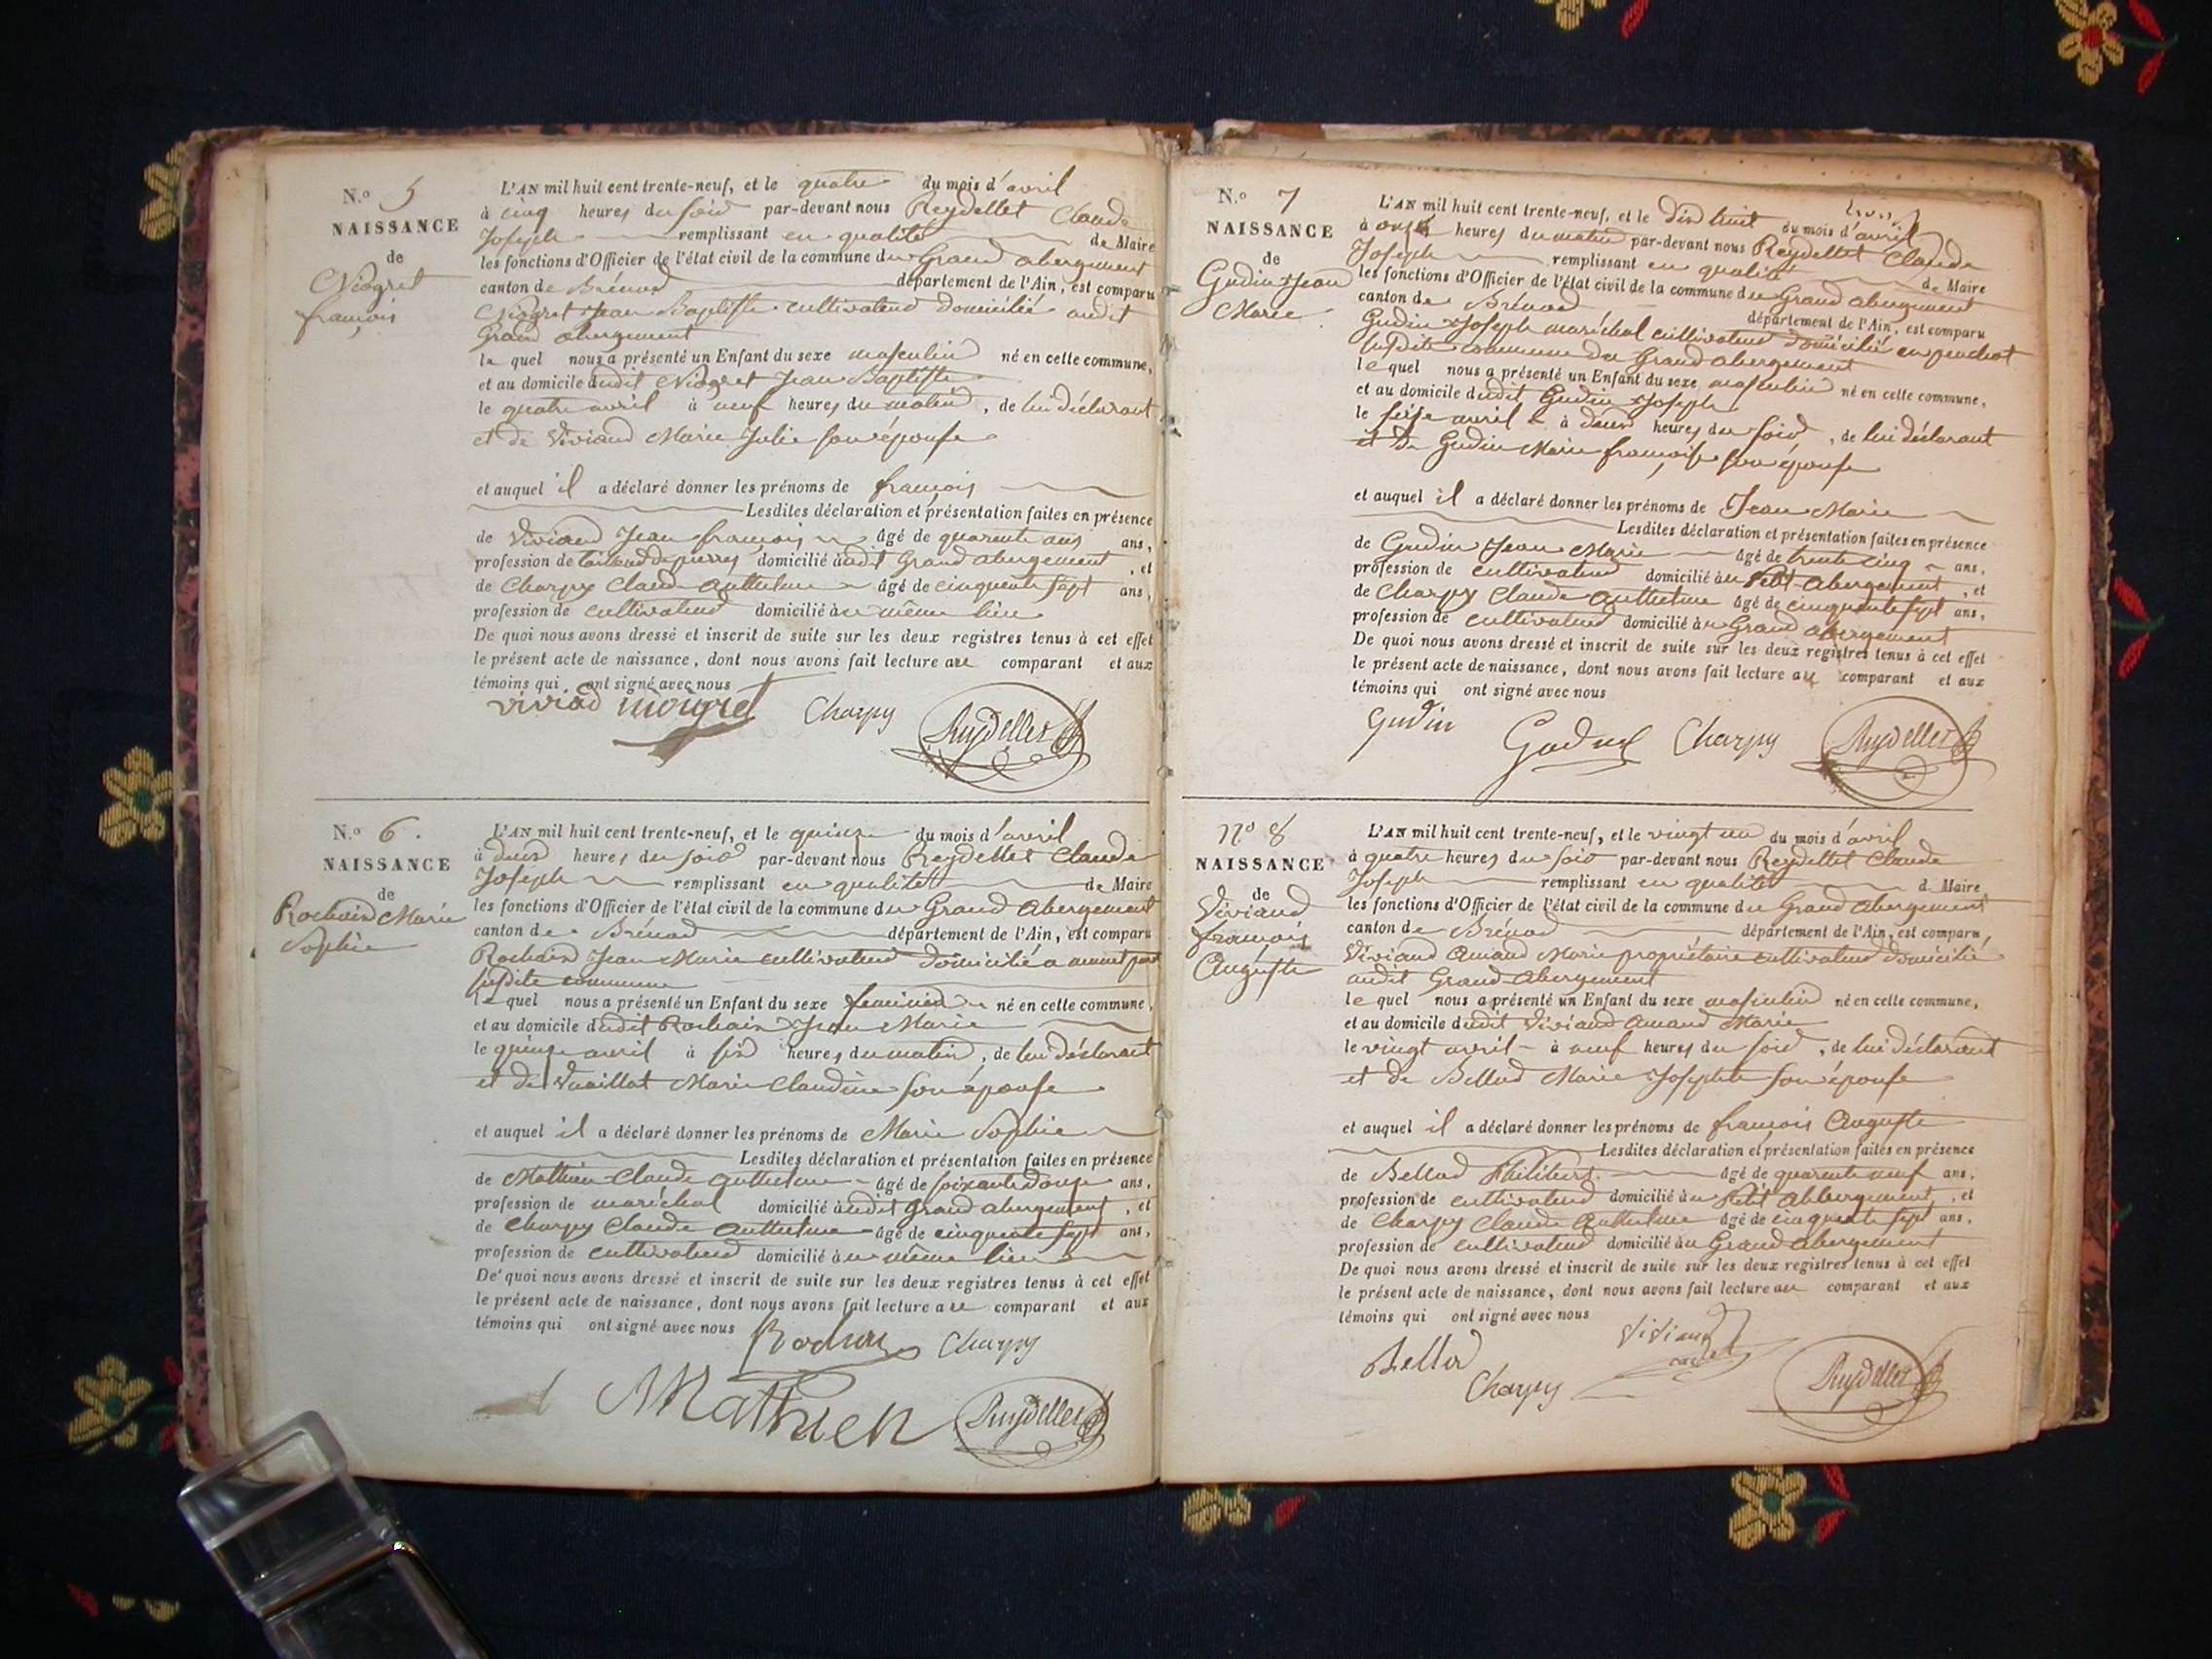 N.o 5
NAISSANCE
de
Niogret
françois
L'AN mil huit cent trente-neuf, et le quatre du mois d'avril
à cinq heures du soir par-devant nous Reydellet Claude
Joseph remplissant en qualité de Maire
les fonctions d'Officier de l'état civil de la commune du Grand abergement
canton de Brénod département de l'Ain, est comparu
Niogret Jean Baptiste cultivateur domicilié audit
Grand abergement
le quel nous a présenté un Enfant du sexe masculin né en cette commune,
et au domicile dudit Niogret Jean Baptiste
le quatre avril à neuf heures du matin, de lui déclarant
et de Viviand Marie Julie son épouse
et auquel il a déclaré donner les prénoms de françois
Lesdites déclaration et présentation faites en présence
de Viviand Jean françois âgé de quarante ans ans,
profession de tailleur de pierres domicilié audit Grand abergement, et
de Charpy Claude Anthelme âgé de cinquante sept ans,
profession de cultivateur domicilié au même lieu
De quoi nous avons dressé et inscrit de suite sur les deux registres tenus à cet effet
le présent acte de naissance, dont nous avons fait lecture au comparant et aux
témoins qui ont signé avec nous
viviad niogret Charpy Reydellet
N.o 6.
NAISSANCE
de
Rochaix Marie
Sophie
L'AN mil huit cent trente-neuf, et le quinze du mois d'avril
à deux heures du soir par-devant nous Reydellet Claude
Joseph remplissant en qualité de Maire
les fonctions d'Officier de l'état civil de la commune du Grand abergement
canton de Brénod département de l'Ain, est comparu
Rochaix Jean Marie cultivateur domicilié a
susdite commune
le quel nous a présenté un Enfant du sexe feminin né en cette commune,
et au domicile dudit Rochaix Jean Marie
le quinze avril à six heures du matin, de lui déclarant
et de Vuaillat Marie Claudine son épouse
et auquel il a déclaré donner les prénoms de Marie Sophie
Lesdites déclaration et présentation faites en présence
de Mathieu Claude Anthelme âgé de soixante douze ans,
profession de maréchal domicilié audit Grand abergement, et
de Charpy Claude Anthelme âgé de cinquante sept ans,
profession de cultivateur domicilié au même lieu
De quoi nous avons dressé et inscrit de suite sur les deux registres tenus à cet effet
le présent acte de naissance, dont nous avons fait lecture au comparant et aux
témoins qui ont signé avec nous
Charpy
Mathieu Reydellet
N.o 7
NAISSANCE
de
Gudin Jean
Marie
L'AN mil huit cent trente-neuf, et le dix huit du mois d'avril
à onze heures du matin par-devant nous Reydellet Claude
Joseph remplissant en qualité de Maire
les fonctions d'Officier de l'état civil de la commune du Grand abergement
canton de Brénod département de l'Ain, est comparu
Gudin Joseph maréchal cultivateur domicilié
susdite commune du Grand abergement
le quel nous a présenté un Enfant du sexe masculin né en cette commune,
et au domicile dudit Gudin Joseph
le seize avril à deux heures du soir, de lui déclarant
et de Gudin Marie françoise son épouse
et auquel il a déclaré donner les prénoms de Jean Marie
Lesdites déclaration et présentation faites en présence
de Gudin Jean Marie âgé de trente cinq ans,
profession de cultivateur domicilié au Petit Abergement, et
de Charpy Claude Anthelme âgé de cinquante sept ans,
profession de cultivateur domicilié au Grand abergement
De quoi nous avons dressé et inscrit de suite sur les deux registres tenus à cet effet
le présent acte de naissance, dont nous avons fait lecture au comparant et aux
témoins qui ont signé avec nous
Gudin Charpy Reydellet
No 8
NAISSANCE
de
Viviand
françois
Auguste
L'AN mil huit cent trente-neuf, et le vingt un du mois d'avril
à quatre heures du soir par-devant nous Reydellet Claude
Joseph remplissant en qualité d Maire
les fonctions d'Officier de l'état civil de la commune du Grand abergement
canton de Brénod département de l'Ain, est comparu,
Viviand Amand Marie propriétaire cultivateur domicilié
audit Grand abergement
le quel nous a présenté un Enfant du sexe masculin né en cette commune,
et au domicile dudit Viviand Amand Marie
le vingt avril à neuf heures du soir, de lui déclarant
et de Bellod Marie Josephte son épouse
et auquel il a déclaré donner les prénoms de françois Auguste
Lesdites déclaration et présentation faites en présence
de Bellod Philibert âgé de quarante neuf ans,
profession de cultivateur domicilié au Petit Abbergement, et
de Charpy Claude Anthelme âgé de cinquante sept ans,
profession de cultivateur domicilié au Grand abergement
De quoi nous avons dressé et inscrit de suite sur les deux registres tenus à cet effet
le présent acte de naissance, dont nous avons fait lecture au comparant et aux
témoins qui ont signé avec nous
Viviand
Bellod Charpy Reydellet